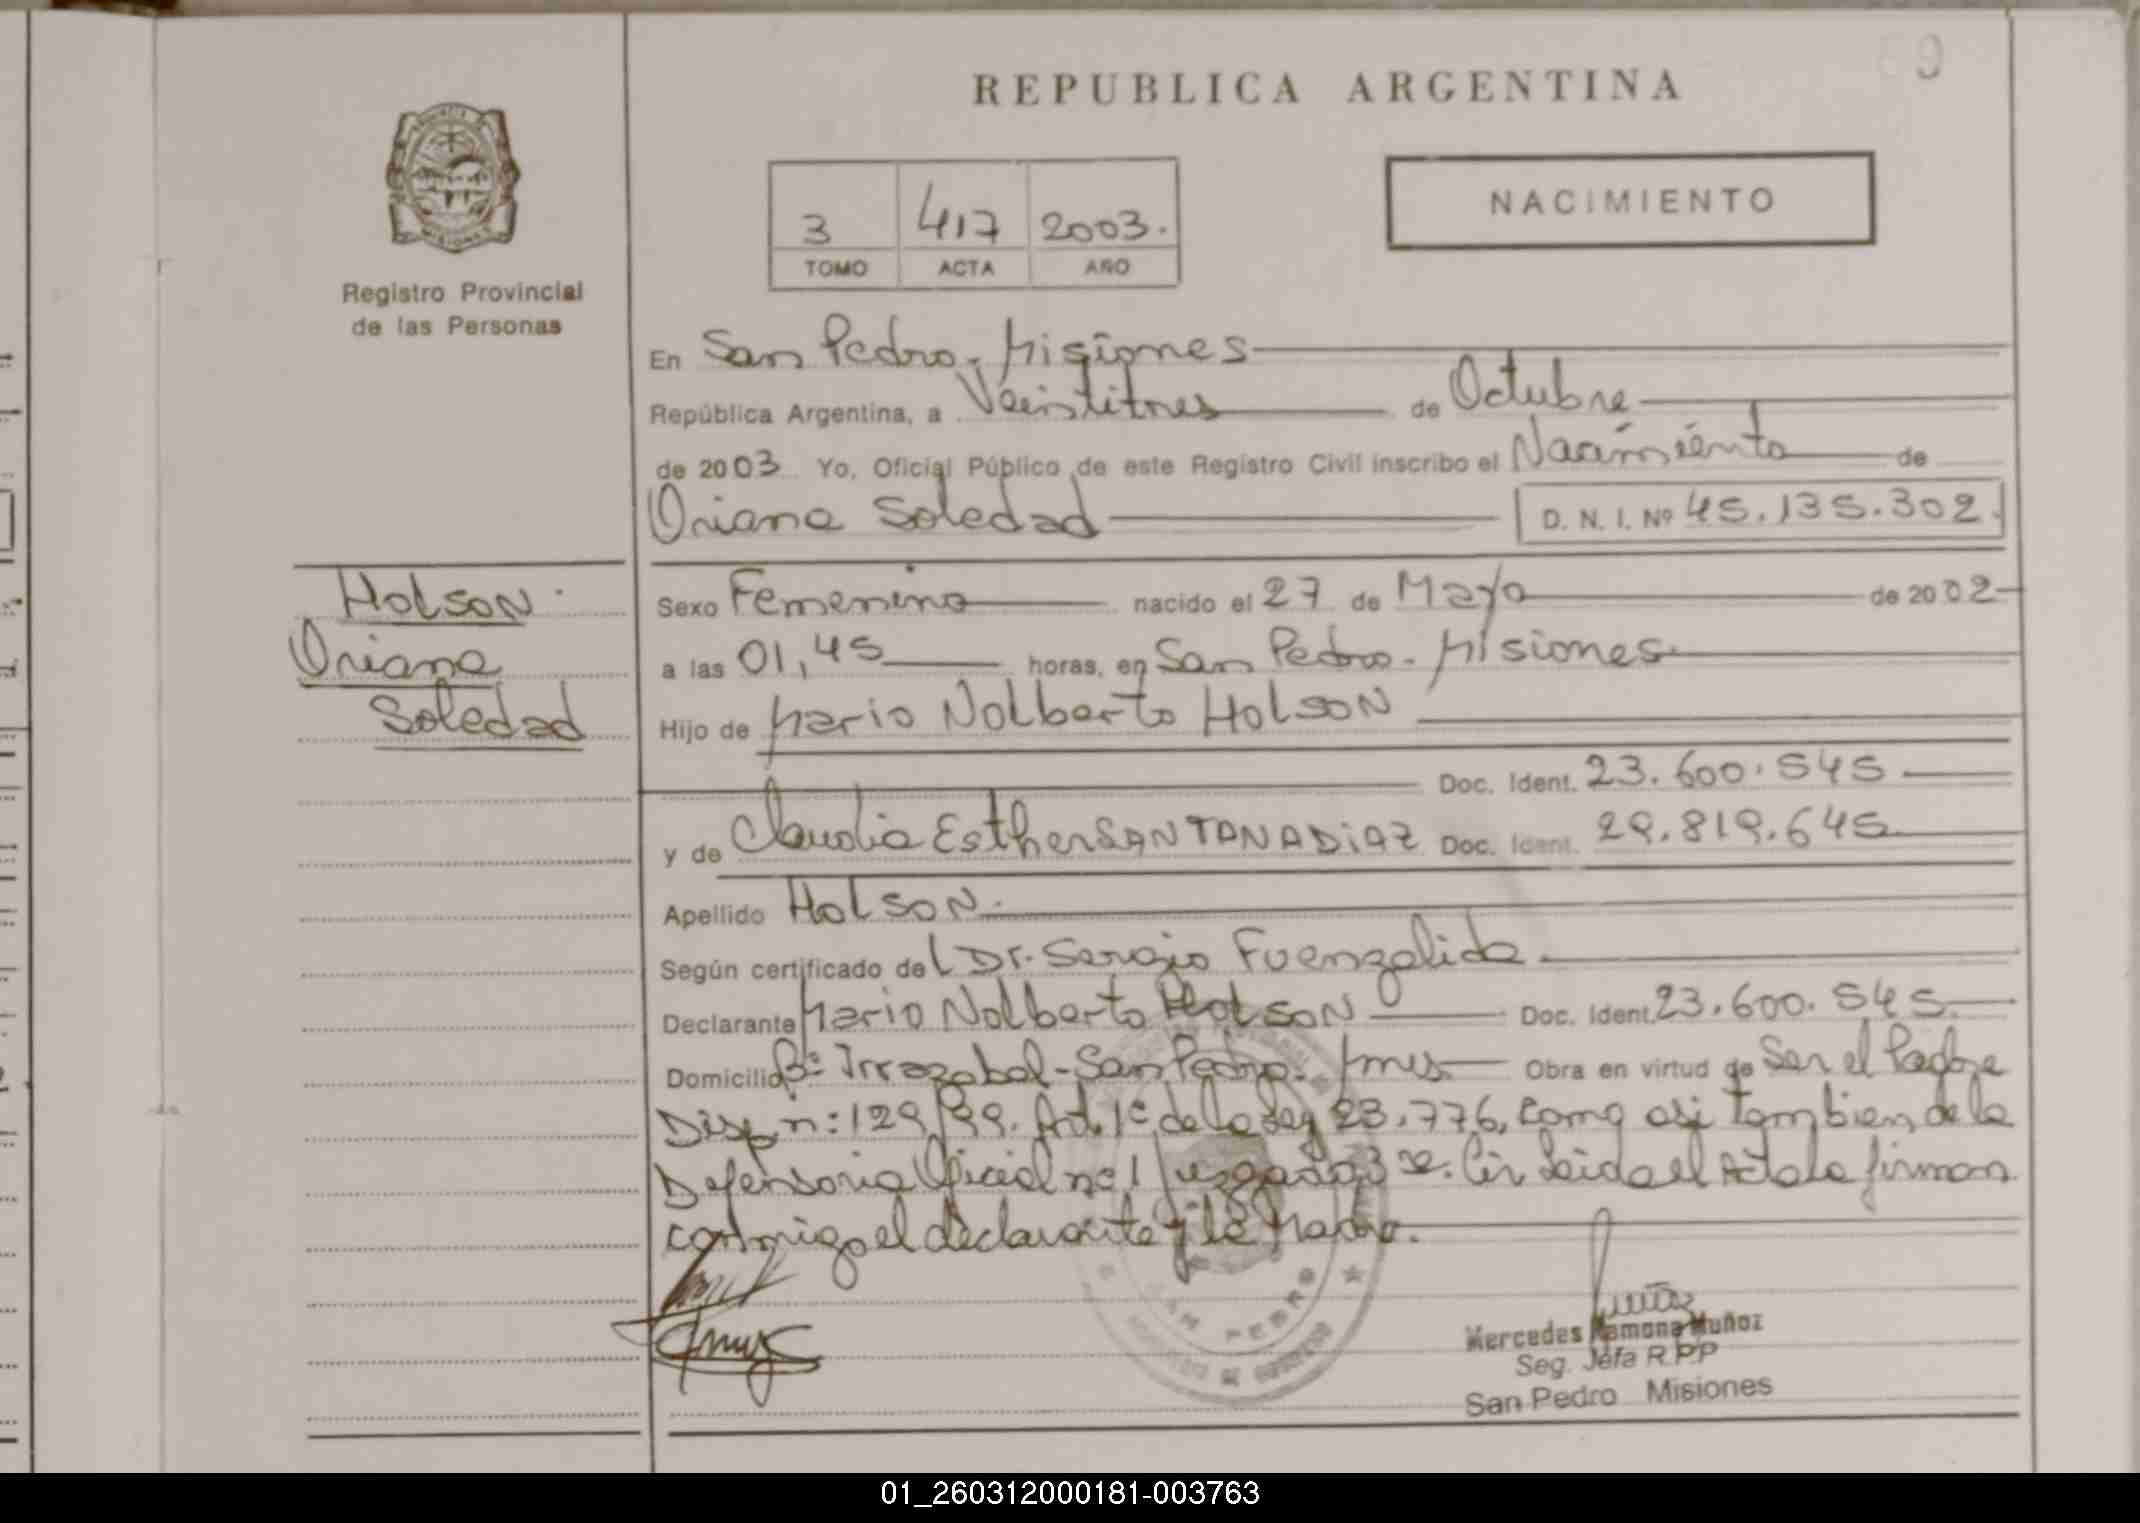 REPUBLICA ARGENTINA
69
Registro Provincial
de las Personas
3 417 2003.
TOMO ACTA AÑO
NACIMIENTO
En San Pedro - Misiones
República Argentina, a Veintitres de Octubre
de 2003 Yo, Oficial Público de este Registro Civil inscribo el Nacimiento de
Oriana Soledad D. N. I. Nº 45.135.302.
Holson
Oriana
Soledad
Sexo Femenino nacido el 27 de Mayo de 2002
a las 01,45 horas, en San Pedro - Misiones
Hijo de Mario Nolberto Holson
Doc. Ident. 23.600.545
y de Claudia Esther SANTANA DiAZ Doc. Ident. 29.819.645
Apellido Holson.
Según certificado del Dr. Sergio Fuenzalida
Declarante Mario Nolberto Holson Doc. Ident. 23.600.545
Domicilio Bº Irrazabal - San Pedro - Mnes. Obra en virtud de Ser el Padre
Disp. nº 129/99. Art. 1º de la Ley 23.776, como asi tambien de la
Defensoria Oficial nº 1 Leida el Acta la firman
conmigo el declarante y la Madre.
SAN PEDRO
Mercedes Ramona Muñoz
Seg. Jefa R.P.P
San Pedro Misiones
01_260312000181-003763